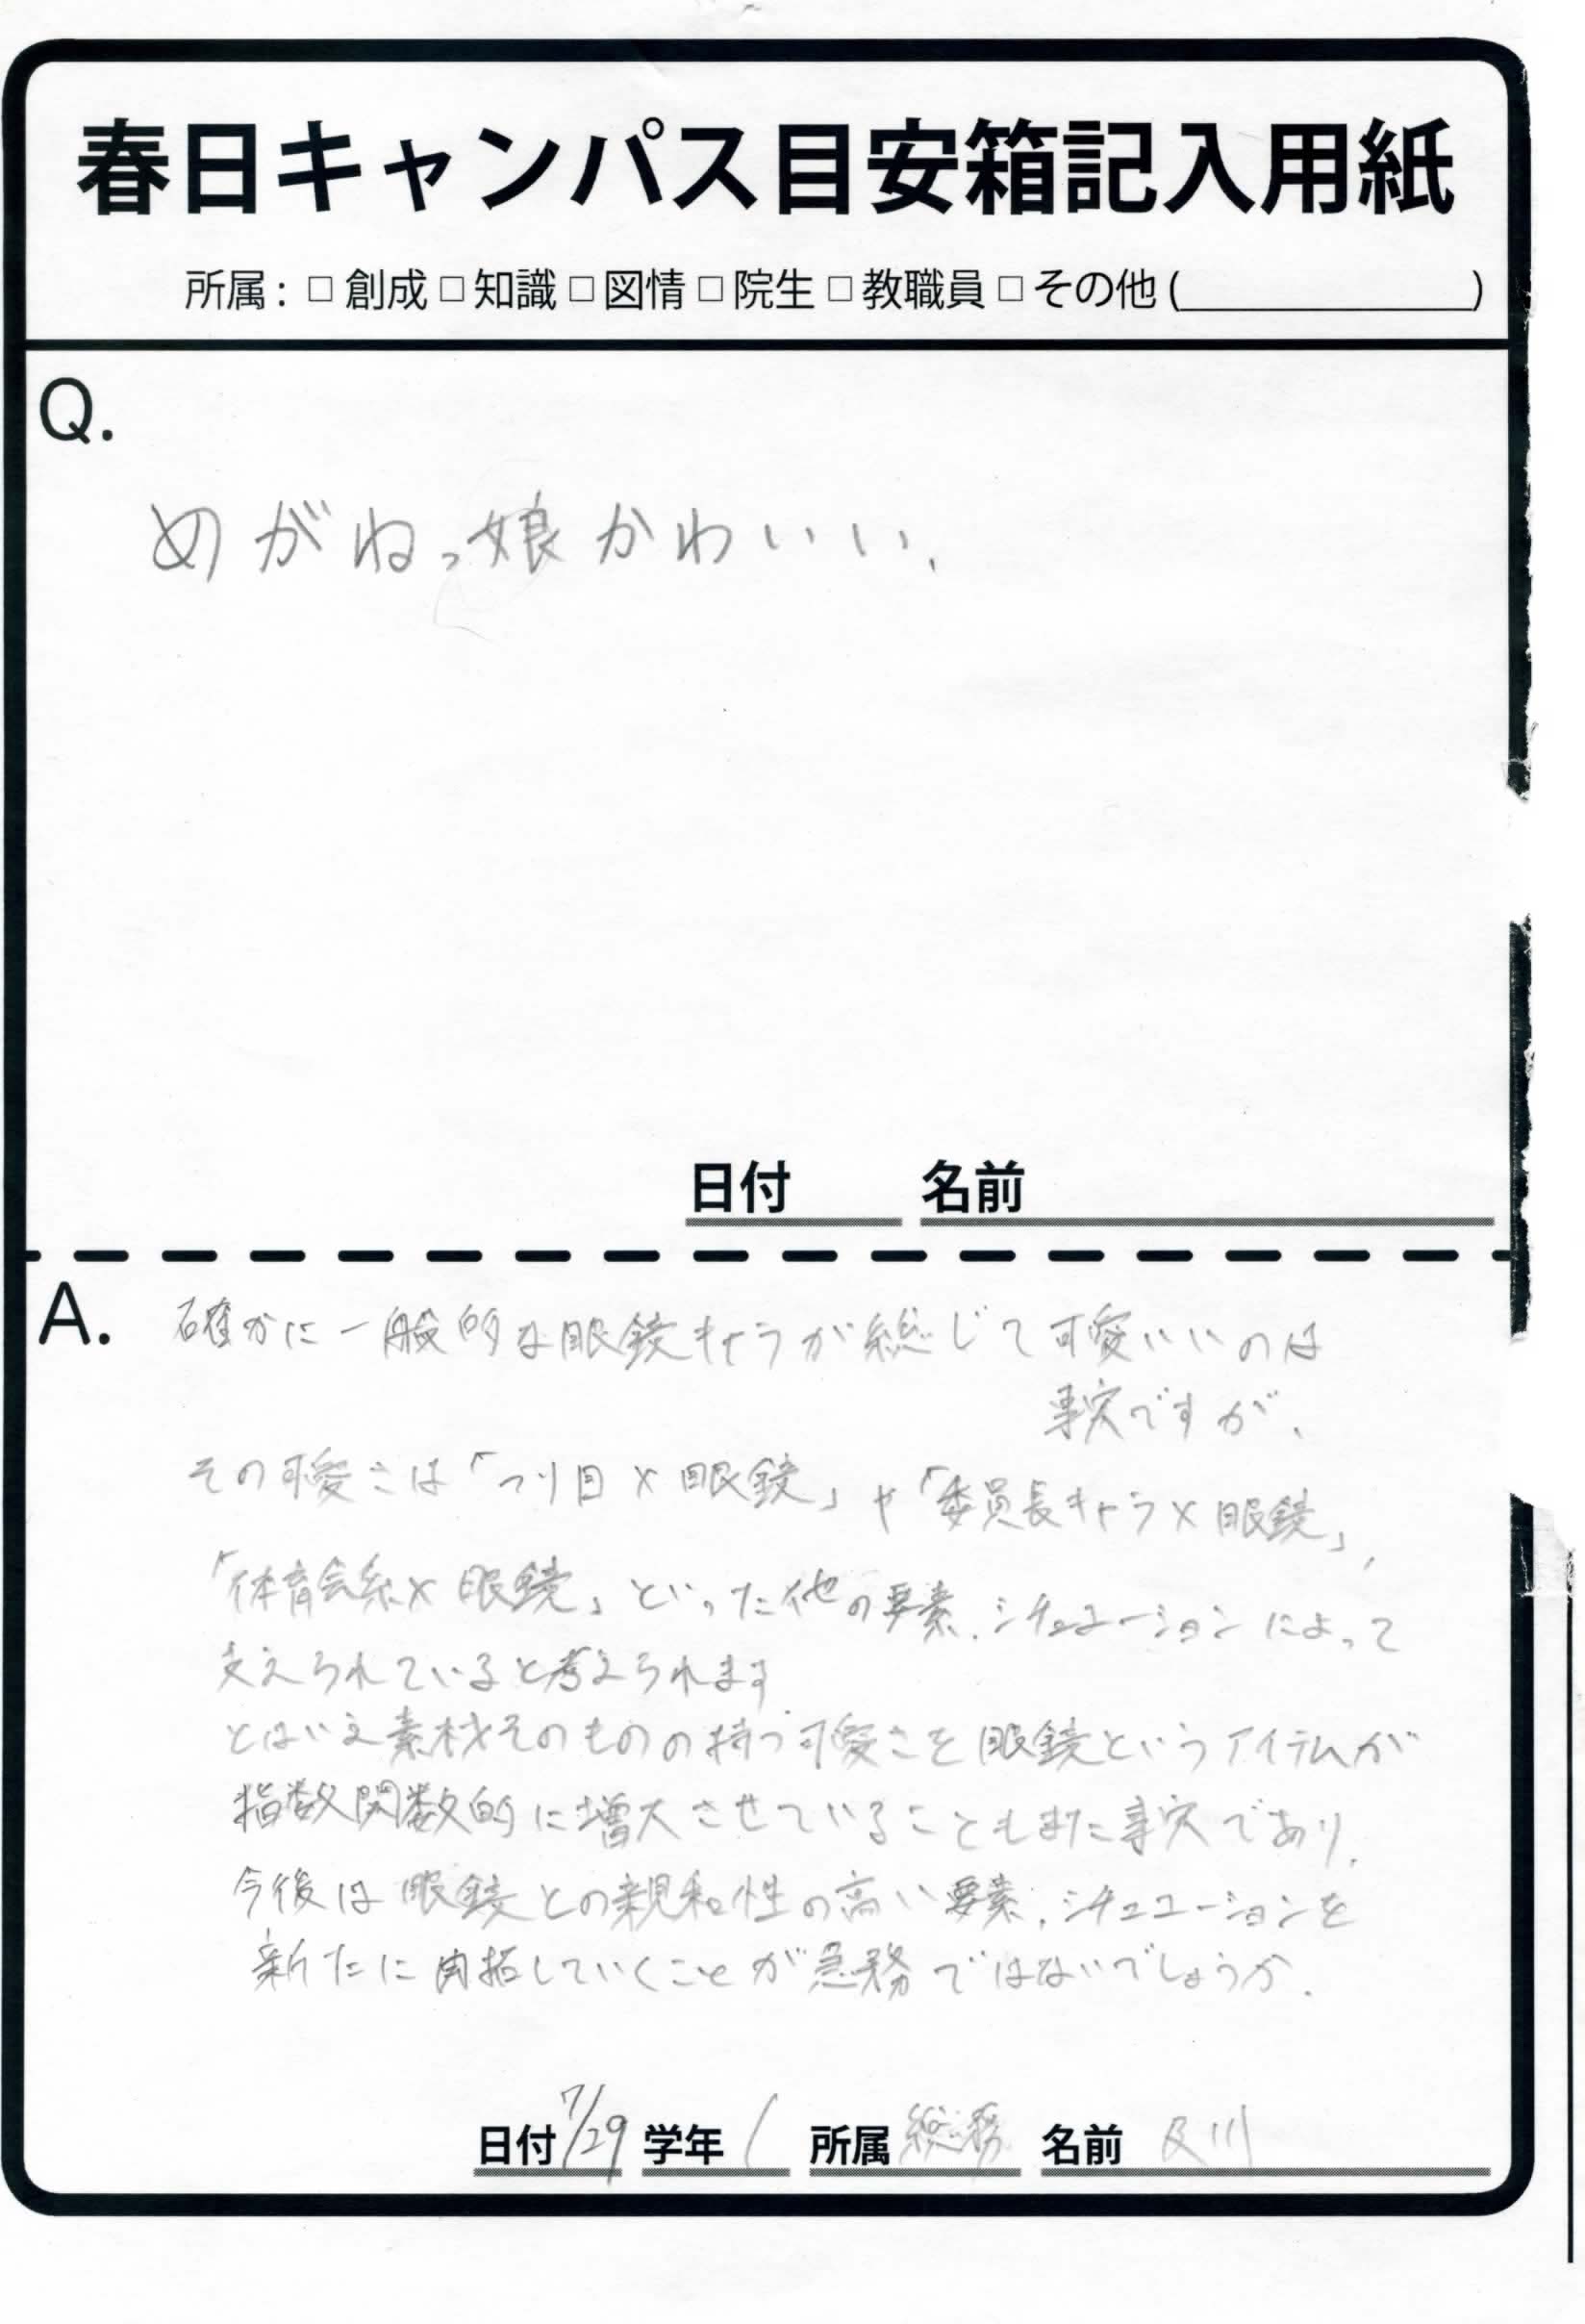 春日キャンパス目安箱記入用紙
所属：□ 創成 □ 知識 □ 図情 □ 院生 □ 教職員 □ その他 (　　　　　)
Q.
めがねっ娘かわいい、
日付　　名前
A. 確かに一般的な眼鏡キャラが総じて可愛いいのは
事実ですが、
その可愛さは「つり目×眼鏡」や「委員長キャラ×眼鏡」、
「体育会系×眼鏡」といった他の要素、シチュエーションによって
支えられていると考えられます
とはいえ素材そのものの持つ可愛さを眼鏡というアイテムが
指数関数的に増大させていることもまた事実であり、
今後は眼鏡との親和性の高い要素、シチュエーションを
新たに開拓していくことが急務ではないでしょうか.
日付 7/29 学年 1 所属 総務 名前 及川